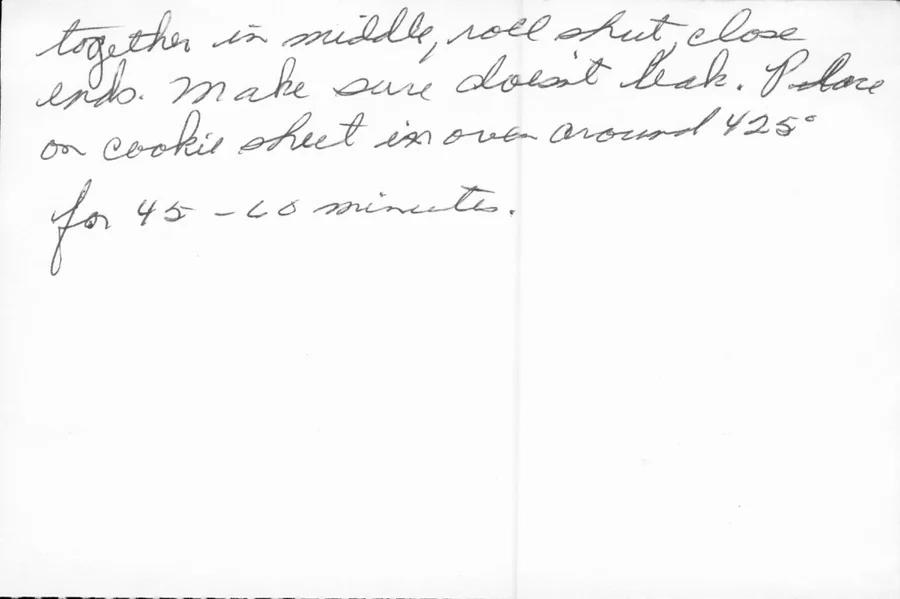 together in middle, roll shut, close
ends. Make sure doesn't leak. Place
on cookie sheet in oven around 425°
for 45 - 60 minutes.